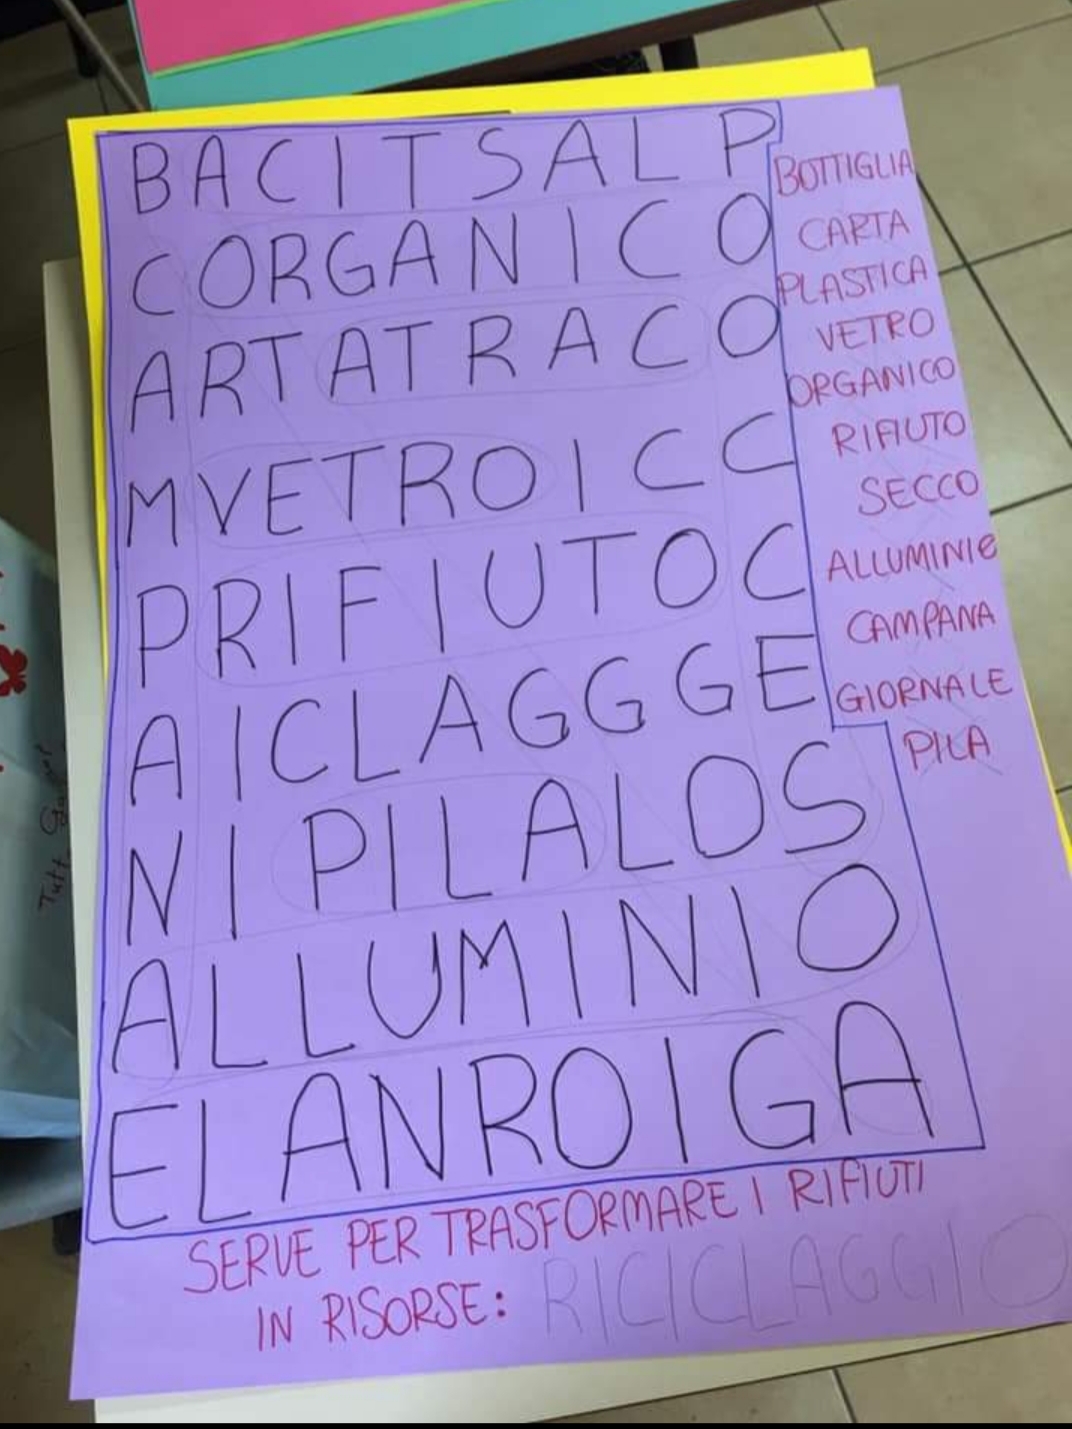 BACITSALP
CORGANICO
ARTATRACO
MVETROICC
PRIFIUTOC
AICLAGGGE
NIPILALOS
ALLUMINIO
ELANROIGA
BOTTIGLIA
CARTA
PLASTICA
VETRO
ORGANICO
RIFIUTO
SECCO
ALLUMINIO
CAMPANA
GIORNALE
PILA
SERVE PER TRASFORMARE I RIFIUTI
IN RISORSE: RICICLAGGIO